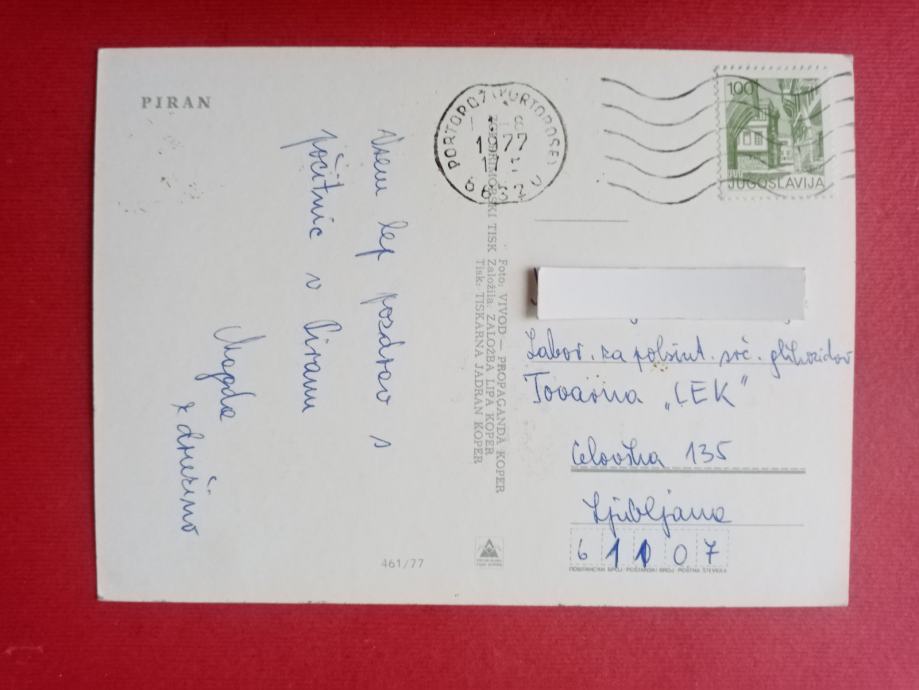 PIRAN
Vsem lep pozdrav s
počitnic v Piranu
Magda
z družino
461/77
Foto: VIVOD — PROPAGANDA KOPER
Založila: ZALOŽBA LIPA KOPER
Tisk: TISKARNA JADRAN KOPER
TISK
PORTOROŽ (PORTOROSE)
1977
66320
100
JUGOSLAVIJA
Labor. za polsint. srč. glikozidov
Tovarna „LEK"
Celovška 135
Ljubljana
61107
POŠTANSKI BROJ POŠTARSKI BROJ POŠTNA ŠTEVILKA